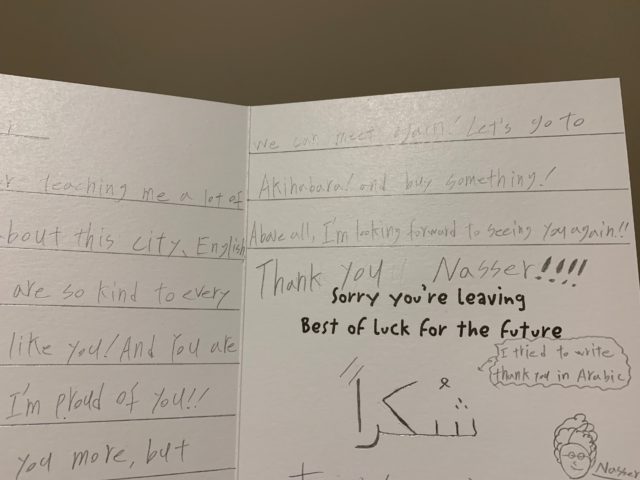 teaching me a lot of
bout this city, English
are so kind to every
like you! And You are
I'm proud of you!!
you more, but
We can meet again! Let's go to
Akihabara! and buy something!
Above all, I'm looking forward to seeing you again!!
Thank you Nasser!!!!
Sorry you're leaving
Best of luck for the future
I tried to write
thank you in Arabic
شُكراً
Nasser